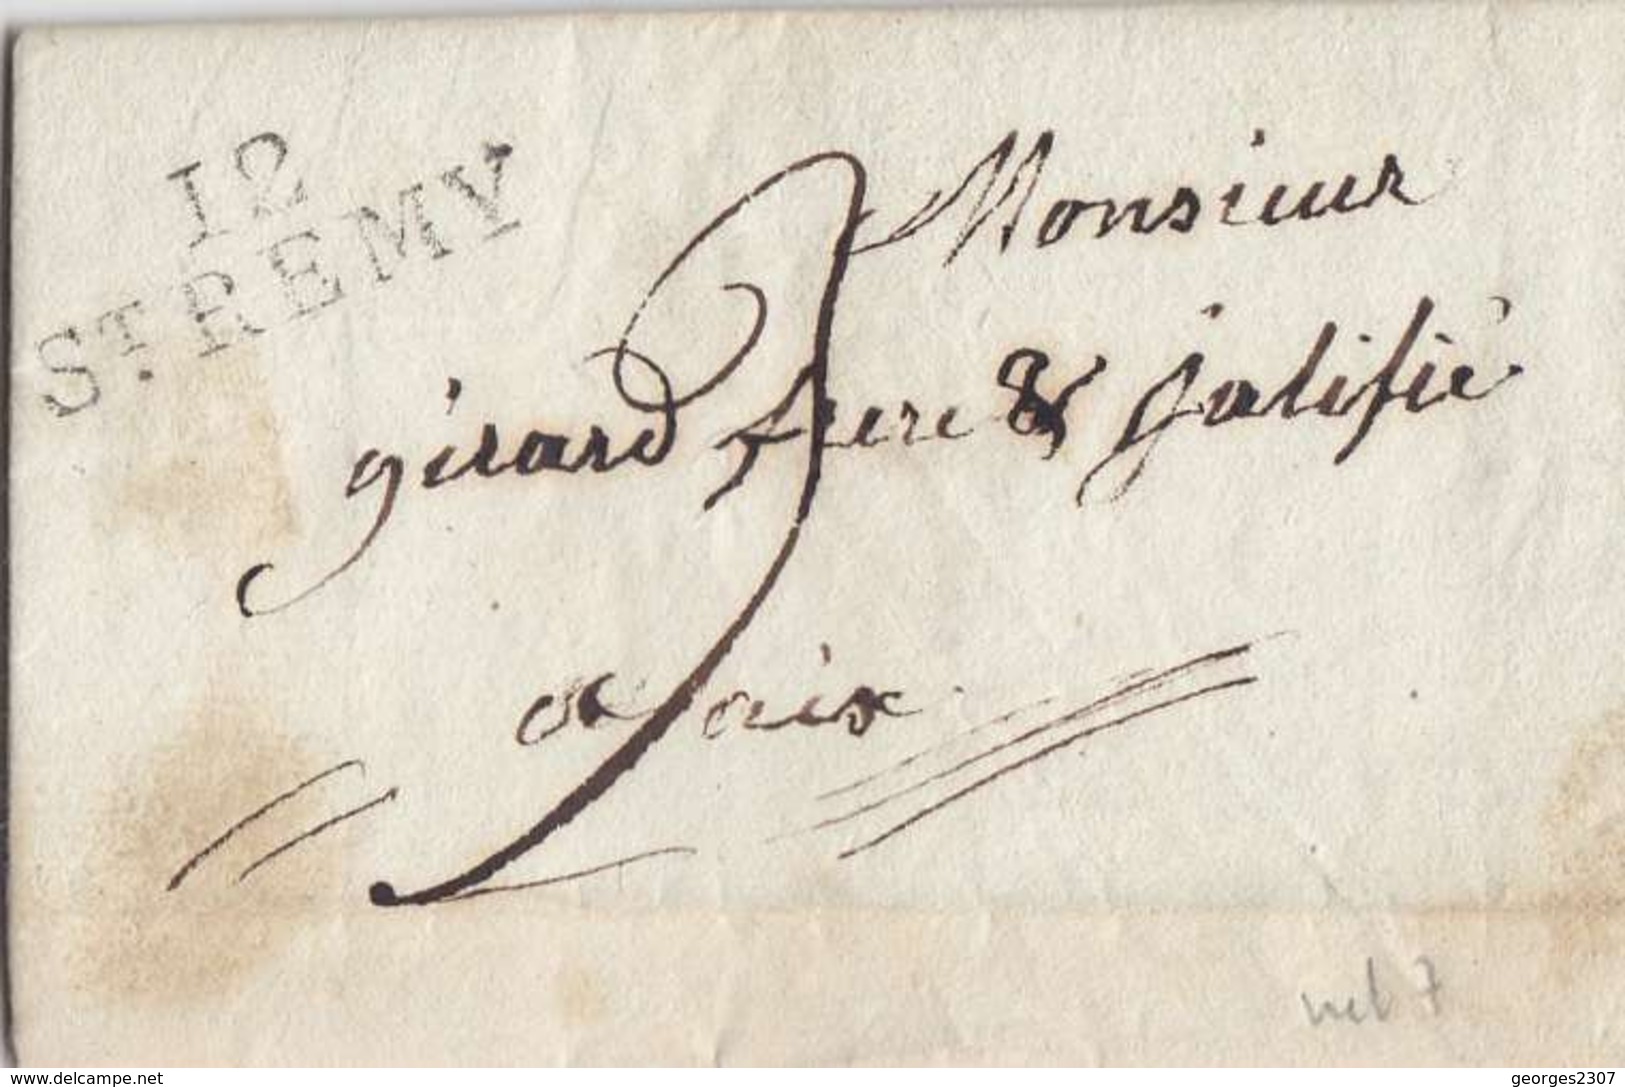 12
ST. REMY
Monsieur
girard frere & jalifié
a aix
www.delcampe.net
georges2307